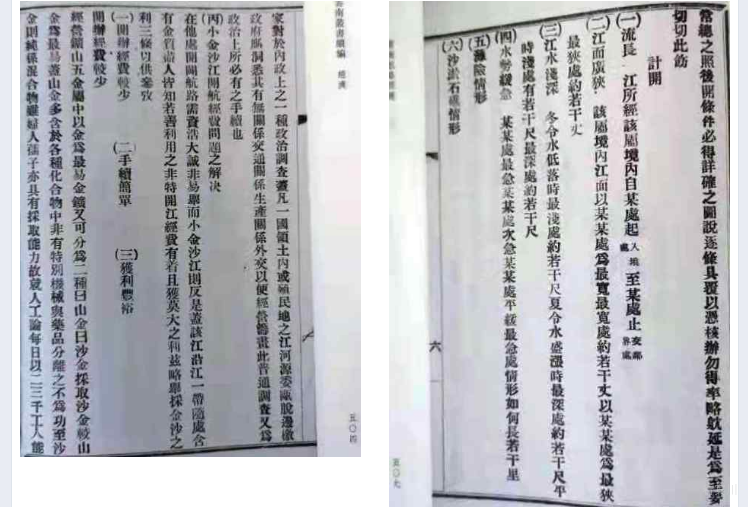 雲南叢書續編　經濟
家對於內政上之一種政治調查蓋凡一國領土內或殖民地之江河源委甌脫邊徼
政府胥洞悉其有無關係交通關係生產關係外交以便經營籌畫此普通調查又為
政治上所必有之手續也
(丙)小金沙江開航經費問題之解決
在他處開闢航路需資浩大誠非易舉而小金沙江則反是蓋該江沿江一帶隨處含
有金質盡人皆知若善利用之非特開江經費有着且獲莫大之利茲略舉採金沙之
利三條以供參攷
(一)開辦經費較少　(二)手續簡單　(三)獲利豐裕
開辦經費較少
經營鑛山五金屬中以金為最易金鑛又可分為二種曰山金曰沙金採取沙金較山
金為最易蓋山金多含於各種化合物中非有特別機械與藥品分離之不為功至沙
金則純係混合物雖婦人孺子亦具有採取能力故就人工論每日以二三千工人能
五〇四
常總之照後開條件必得詳確之圖說逐條具覆以憑核辦勿得率略欷延是為至要
切切此飭
計開
(一)流長　江所經該屬境內自某處起入境處至某處止交鄰界處
(二)江面廣狹　該屬境內江面以某某處為最寬最寬處約若干丈以某某處為最狹
最狹處約若干丈
(三)江水淺深　冬令水低落時最淺處約若干尺夏令水盛漲時最深處約若干尺平
時淺處有若干尺最深處約若干尺
(四)水勢緩急　某某處最急某某處次急某某處平緩最急處情形如何長若干里
(五)灘險情形
(六)沙淤石礁情形
六
五〇七